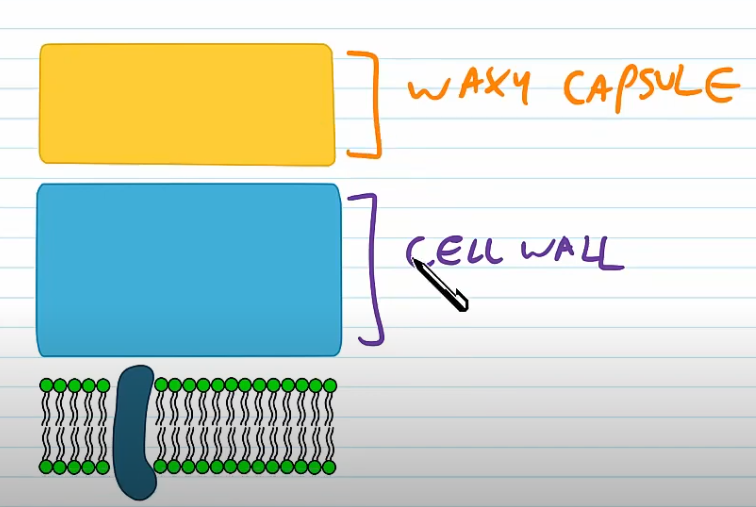 WAXY CAPSULE
CELL WALL